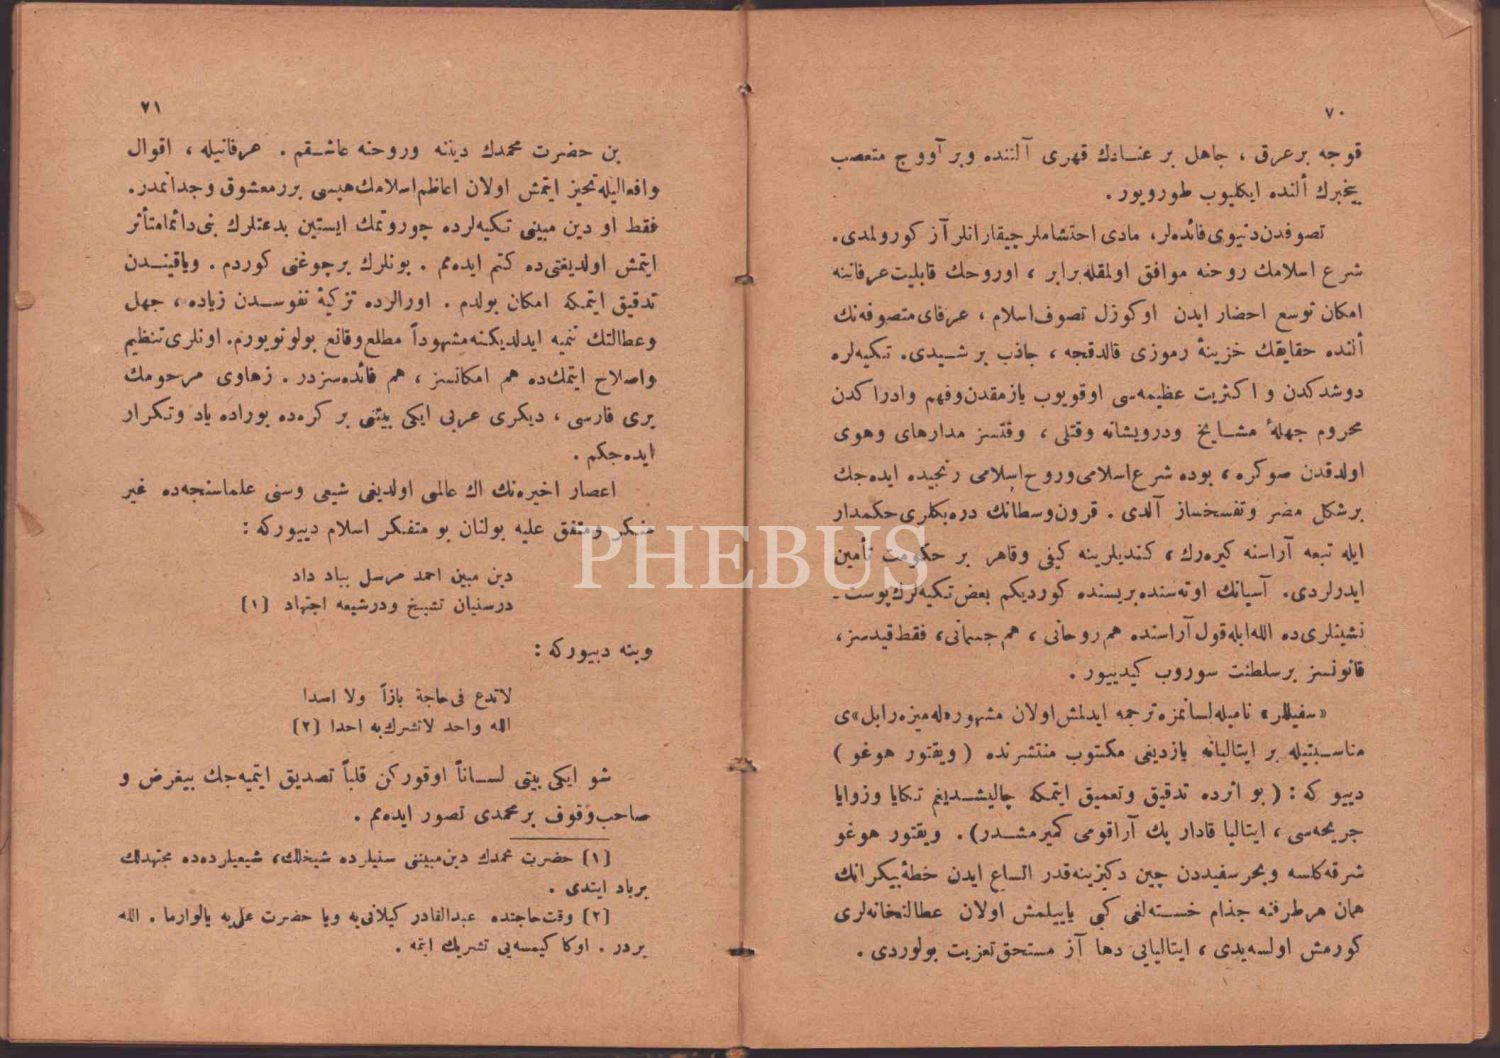 ٧٠
قوجه برعرق ، جاهل بر عنادك قهری آلتنده وبر آووج متعصب
پنجه‌رك ألنده ایكلیوب طورویور .
تصوفدن دنیوی فائده‌لر، مادی احتشاملر چیقارانلر آز كورولمدی.
شرع اسلامك روحنه موافق اولمقله برابر ، اوروحك قابلیت عرفاننه
امكان توسع احضار ایدن اوكوزل تصوف اسلام ، عرفای متصوفه‌نك
ألنده حقایقك خزینهٔ رموزی قالدقجه ، جاذب بر شیدی. تكیه‌لره
دوشدكدن و اكثریت عظیمه‌سی اوقویوب یازمقدن وفهم وادراكدن
محروم جهلهٔ مشایخ ودرویشانه وقتلی ، وقتسز مدارهای وهوی
اولدقدن صوكره ، بوده شرع اسلامی وروح اسلامی رنجیده ایده‌جك
برشكل مضر وتفسخساز آلدی . قرون وسطانك دره‌بكلری حكمدار
ایله تبعه آراسنه كیره‌رك، كندیلرینه كیفی وقاهر بر حكومت تأمین
ایدرلردی. آسیانك اوته‌سنده بریسنده كوردیكم بعض تكیه‌لرك پوست -
نشینلری‌ده الله‌ایله قول آراسنده هم روحانی ، هم جسمانی، فقط قیدسز،
قانونسز برسلطنت سوروب كیدییور .
«سفیللر» نامیله لسانمزه ترجمه ایدلمش اولان مشهور «له میزه رابل»ی
مناسبتیله بر ایتالیانه یازدیغی مكتوب منتشرنده ( ویقتور هوغو )
دییو كه : ( بو اثرده تدقیق وتعمیق ایتمكه چالیشدیغم تكایا وزوایا
جریحه‌سی ، ایتالیا قادار یك آراقومی كمیرمشدر) . ویقتور هوغو
شرقه كلسه وبحر سفیددن چین دكیزینه قدر اتساع ایدن خطهٔ بیكرانك
همان هر طرفنه جذام خسته‌لغی كبی یاییلمش اولان عطالتخانه‌لری
كورمش اولسه‌یدی ، ایتالیایی دها آز مستحق تعزیت بولوردی .
٧١
بن حضرت محمدك دیننه وروحنه عاشقم . عرفانیله ، اقوال
وافعالیله تحیز ایتمش اولان اعاظم اسلامك هپسی بررمعشوق وجدانمدر.
فقط او دین مبینی تكیه‌لرده چوروتمك ایستین بدعتلرك بنی دائما متأثر
ایتمش اولدیغنی ده كتم ایده‌مم . بونلرك برچوغنی كوردم . ویاقیندن
تدقیق ایتمكه امكان بولدم . اورالرده تزكیهٔ نفوسدن زیاده ، جهل
وعطالتك تنمیه ایدلدیكنه مشهوداً مطلع وقانع بولونویورم. اونلری تنظیم
واصلاح ایتمك‌ده هم امكانسز ، هم فائده‌سزدر . زهاوی مرحومك
بری فارسی ، دیكری عربی ایكی بیتنی بر كره‌ده بوراده یاد وتكرار
ایده‌جكم .
اعصار اخیره‌نك اك عالمی اولدیغی شیعی وسنی علماسنجه‌ده غیر
منكر ومتفق علیه بولنان بو متفكر اسلام دییوركه :
دین مبین احمد مرسل بباد داد
درسنیان تشیخ ودرشیعه اجتهاد [١]
وینه دییوركه :
لاتدع فی حاجة بازاً ولا اسدا
الله واحد لاتشرك به احدا [٢]
شو ایكی بیتی لساناً اوقوركن قلباً تصدیق ایتمیه‌جك بیغرض و
صاحب وقوف برمحمدی تصور ایده‌مم .
[١] حضرت محمدك دین مبیننی سنیلرده شیخلك، شیعیلرده‌ده مجتهدلك
برباد ایتدی .
[٢] وقت حاجتده عبدالقادر كیلانی‌یه ویا حضرت علی‌یه یالوارما . الله
بردر . اوكا كیمسه‌یی تشریك ایتمه .
PHEBUS